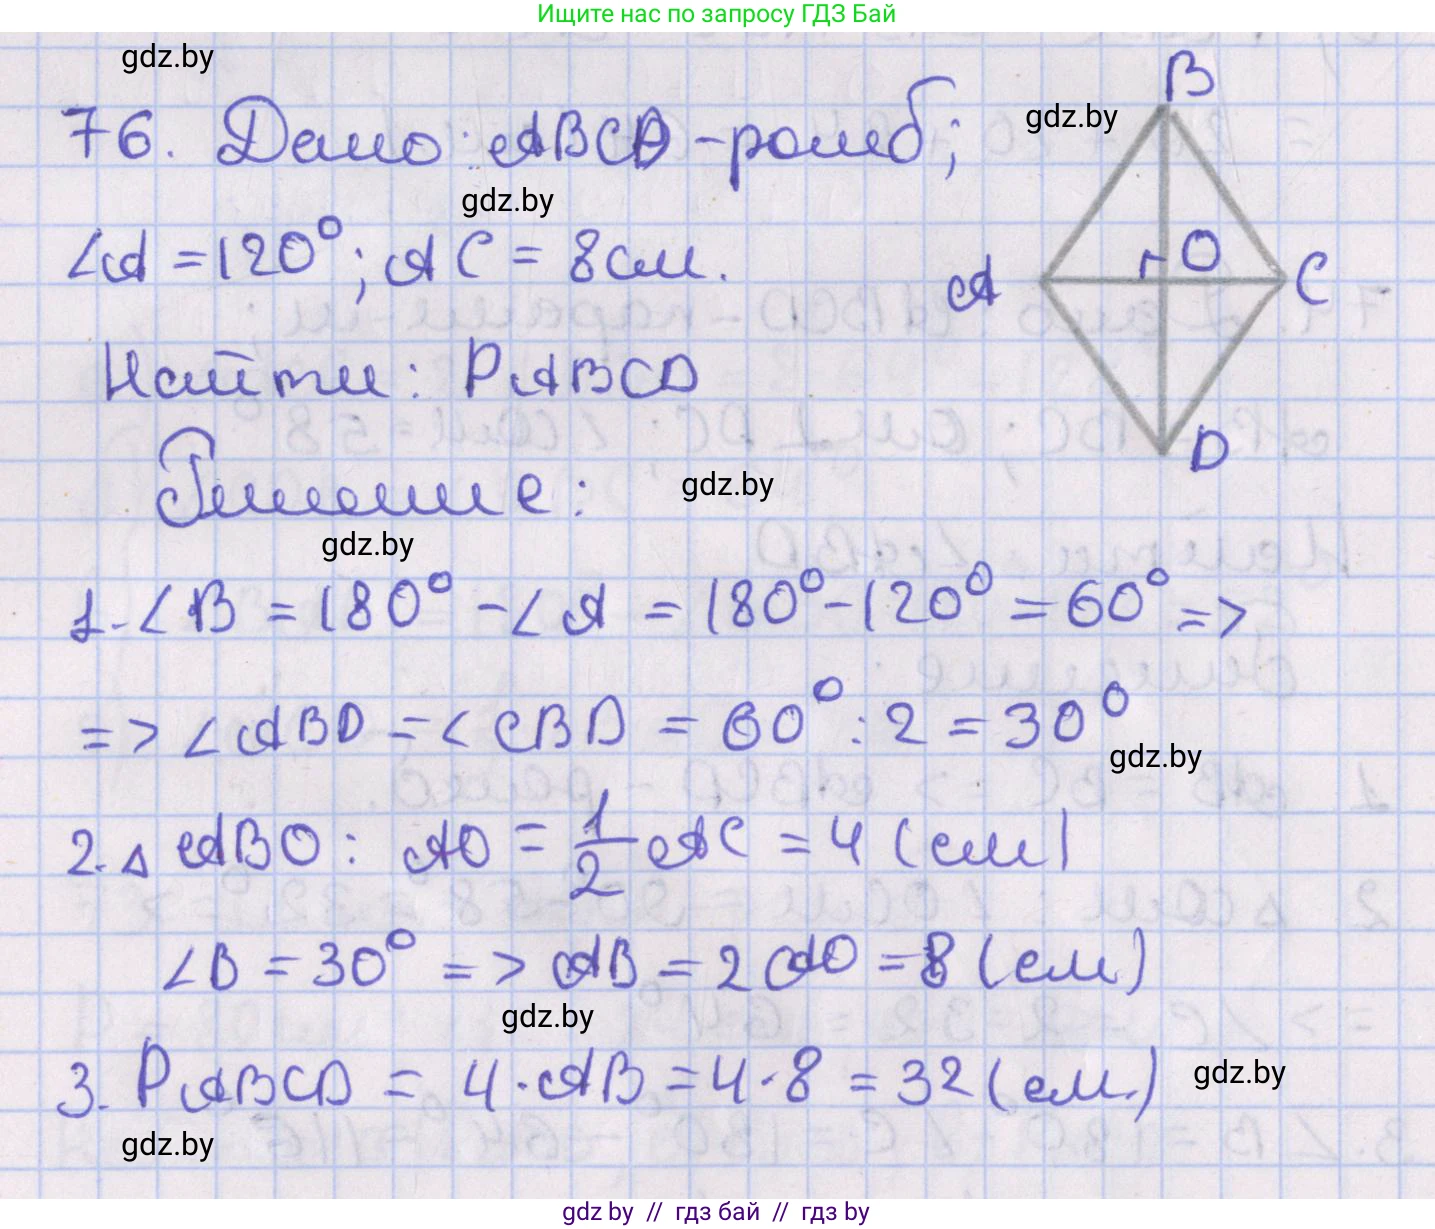 Ищите нас по запросу ГДЗ Бай
gdz.by
76. Дано: ABCD - ромб;
gdz.by
B
gdz.by
∠A = 120°; AC = 8 см.
A
O
C
Найти: PABCD
D
Решение:
gdz.by
gdz.by
1. ∠B = 180° - ∠A = 180° - 120° = 60° =>
=> ∠ABD = ∠CBD = 60° : 2 = 30°
gdz.by
2. △ ABO: AO = 1/2 AC = 4 (см)
∠B = 30° => AB = 2AO = 8 (см)
gdz.by
3. PABCD = 4·AB = 4·8 = 32 (см.)
gdz.by
gdz.by
gdz by // гдз бай // гдз by